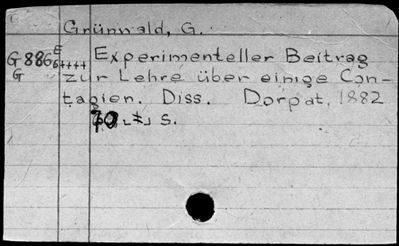 Grünwald, G.
G886 E Experimenteller Beitrag
G zur Lehre über einige Con-
tagien. Diss. Dorpat, 1882
70 S.